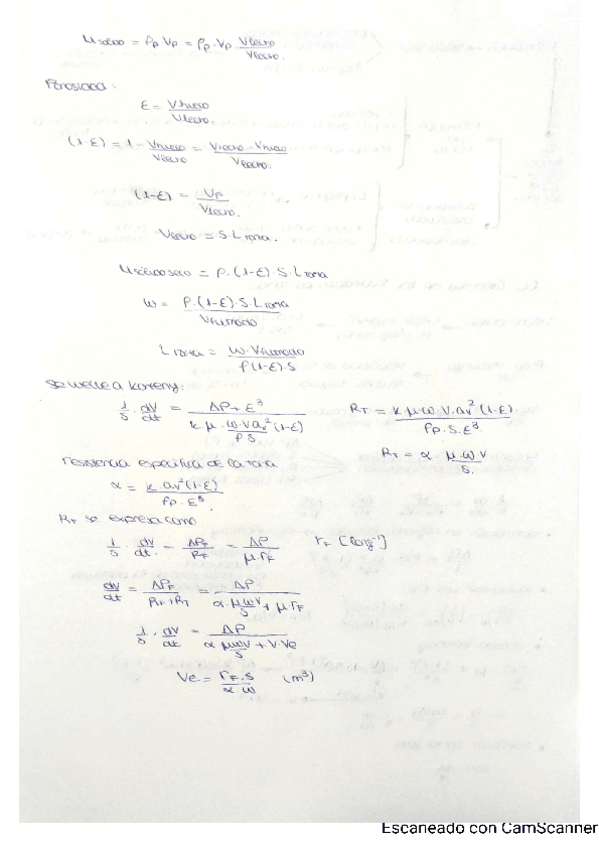 M sólido = ρp Vp = ρp · Vp · Vlecho / Vlecho.
Porosidad:
ε = Vhueco / Vlecho
(1-ε) = 1 - Vhueco / Vlecho = Vlecho - Vhueco / Vlecho.
(1-ε) = Vp / Vlecho.
Vlecho = S · L torta.
M sólido seco = ρ · (1-ε) · S · L torta
w = ρ · (1-ε) · S · L torta / Vfiltrado
L torta = w · Vfiltrado / ρ(1-ε) · S
Se vuelve a Kozeny:
1/S · dV/dt = ΔPT ε³ / k μ · w · V av² (1-ε) / ρ S
RT = k μ · w · V · av² (1-ε) / ρp · S · ε³
RT = α · μ w V / S.
resistencia específica de la torta
α = k · av² (1-ε) / ρp · ε³
RF se expresa como
1/S · dV/dt = ΔPF / RF = ΔP / μ · rF rF [long⁻¹]
dV/dt = ΔPF / RF + RT = ΔP / α · μ w V / S + μ · rF
1/S · dV/dt = ΔP / α μ w V / S + V · Ve
Ve = rF · S / α w (m³)
Escaneado con CamScanner